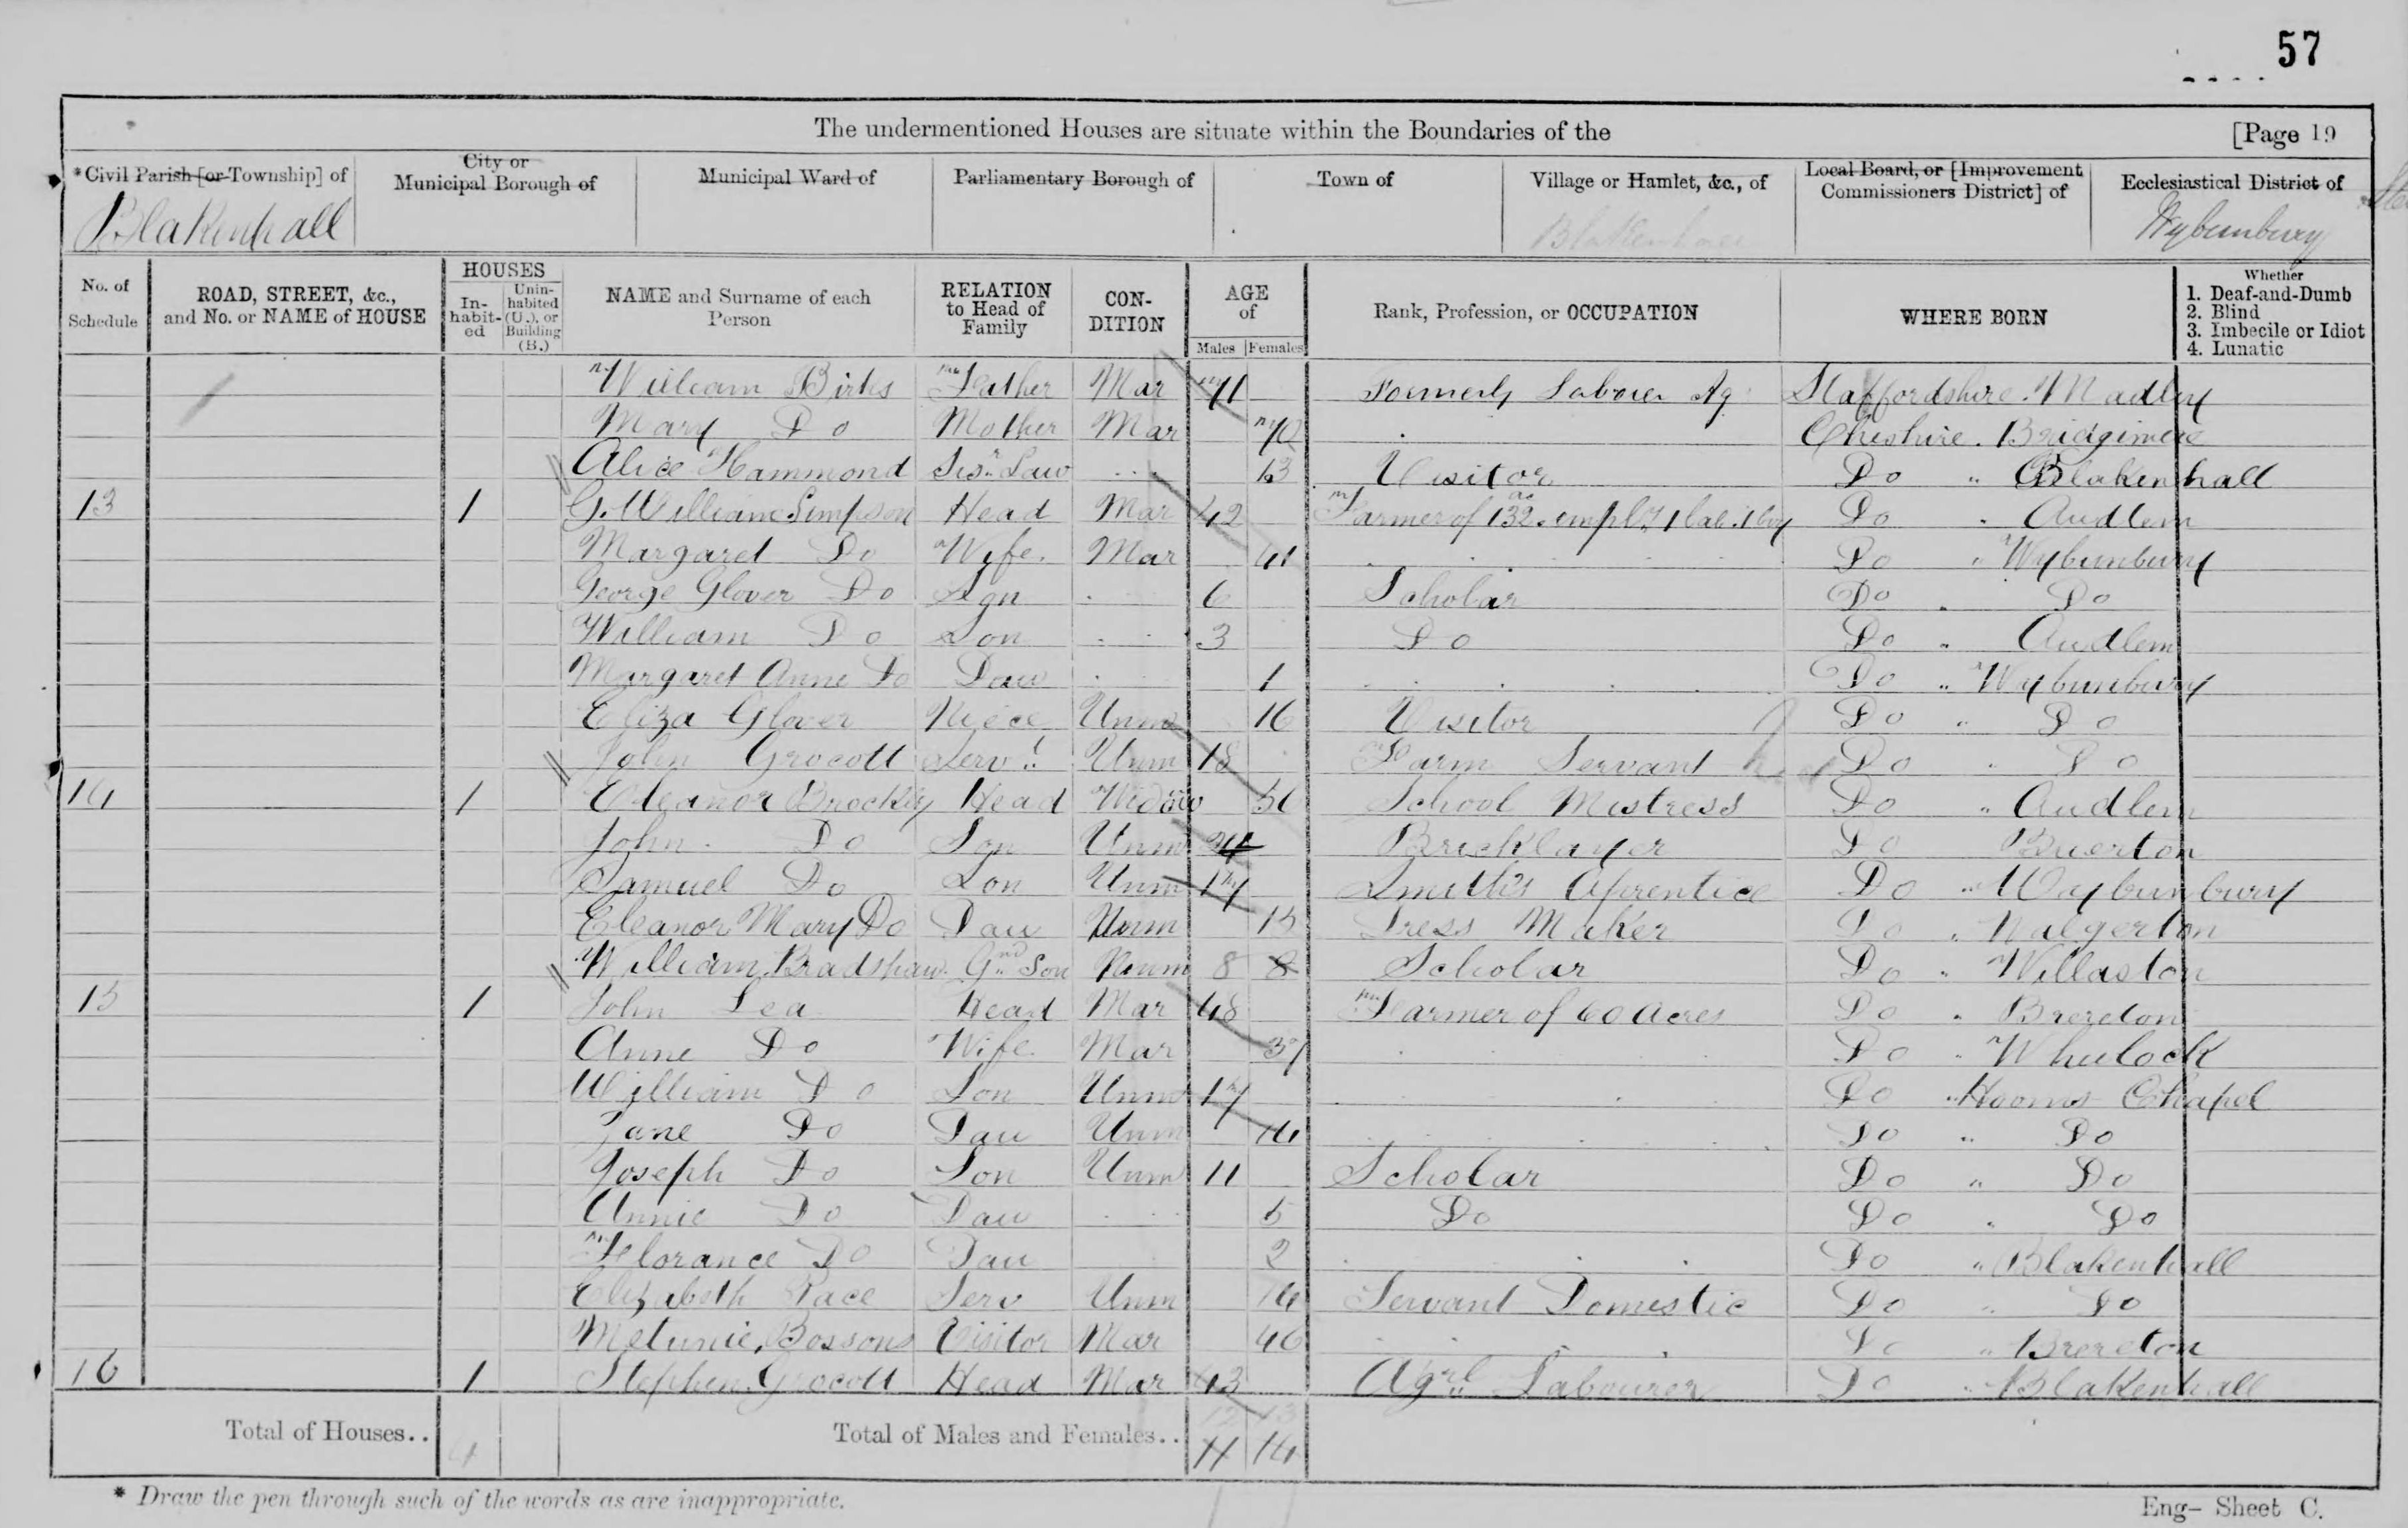 57
The undermentioned Houses are situate within the Boundaries of the [Page 19
*Civil Parish [or Township] of
Blakenhall
City or Municipal Borough of
Municipal Ward of
Parliamentary Borough of
Town of
Village or Hamlet, &c., of
Blakenhall
Local Board, or [Improvement Commissioners District] of
Ecclesiastical District of
Wybunbury
No. of Schedule
ROAD, STREET, &c., and No. or NAME of HOUSE
HOUSES
In-habit-ed
Unin-habited (U.), or Building (B.)
NAME and Surname of each Person
RELATION to Head of Family
CON-DITION
AGE of
Males Females
Rank, Profession, or OCCUPATION
WHERE BORN
Whether
1. Deaf-and-Dumb
2. Blind
3. Imbecile or Idiot
4. Lunatic
William Birks Father Mar 71 Formerly Labourer Ag Staffordshire. Madley
Mary Do Mother Mar 70 Cheshire. Bridgimere
Alice Hammond Sisr Law 13 Visitor Do " Blakenhall
13 1 G. William Simpson Head Mar 42 Farmer of 132 ac emplg 1 lab. 1 boy Do " Audlem
Margaret Do Wife Mar 41 Do " Wybunbury
George Glover Do Son 6 Scholar Do " Do
William Do Son 3 Do Do " Audlem
Margaret Anne Do Dau 1 Do " Wybunbury
Eliza Glover Niece Unm 16 Visitor Do " Do
John Grocott Servt Unm 18 Farm Servant Do " Do
14 1 Eleanor Head Widow 56 School Mistress Do " Audlem
John Do Son Unm 24 Bricklayer Do Buerton
Samuel Do Son Unm 17 Smith's Aprentice Do " Wybunbury
Eleanor Mary Do Dau Unm 15 Dress Maker Do " Walgerton
William Bradshaw Gnd Son Unm 8 8 Scholar Do " Willaston
15 1 John Lea Head Mar 48 Farmer of 60 Acres Do " Brereton
Anne Do Wife Mar 37 Do " Wheelock
William Do Son Unm 17 Do " Hooms Chapel
Jane Do Dau Unm 14 Do " Do
Joseph Do Son Unm 11 Scholar Do " Do
Annie Do Dau 5 Do Do " Do
Florance Do Dau 2 Do " Blakenhall
Elizabeth Pace Serv Unm 14 Servant Domestic Do " Do
Bossons Visitor Mar 46 Do " Brereton
16 1 Stephen Grocott Head Mar 43 Agrl Labourer Do " Blakenhall
Total of Houses.. 4 Total of Males and Females.. 12 13
11 14
* Draw the pen through such of the words as are inappropriate.
Eng- Sheet C.